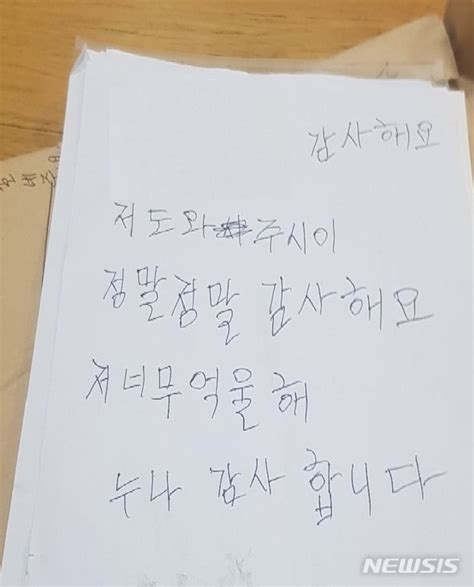 감사해요
저도와 주시이
정말정말 감사해요
저너무억울해
누나 감사 합니다
NEWSIS